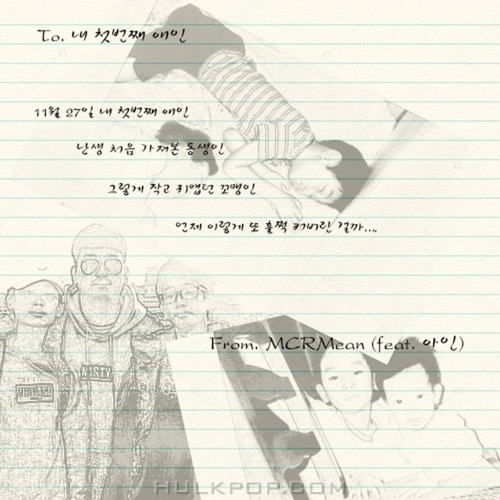 To. 내 첫번째 애인
11월 27일 내 첫번째 애인
난생 처음 가져본 동생인
그렇게 작고 귀엽던 꼬맹인
언제 이렇게 또 훌쩍 커버린 걸까....
From. MCRMean (feat. 아인)
NASTY
HULKPOP.COM